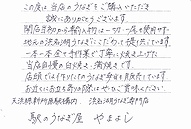 この度は当店のうなぎをご購入いただき
誠にありがとうございます
開店当初から輸入物は一切一尾も使用せず
地元の浜名湖うなぎにこだわって提供しています
一本一本手作業で丁寧に焼き上げた
当店自慢の白焼き・蒲焼きです
店頭では作りたてのうなぎ弁当を販売しています
お近くにお立ち寄りの際はぜひご賞味ください
天浜線新所原駅構内 浜名湖うなぎ専門店
駅のうなぎ屋 やまよし